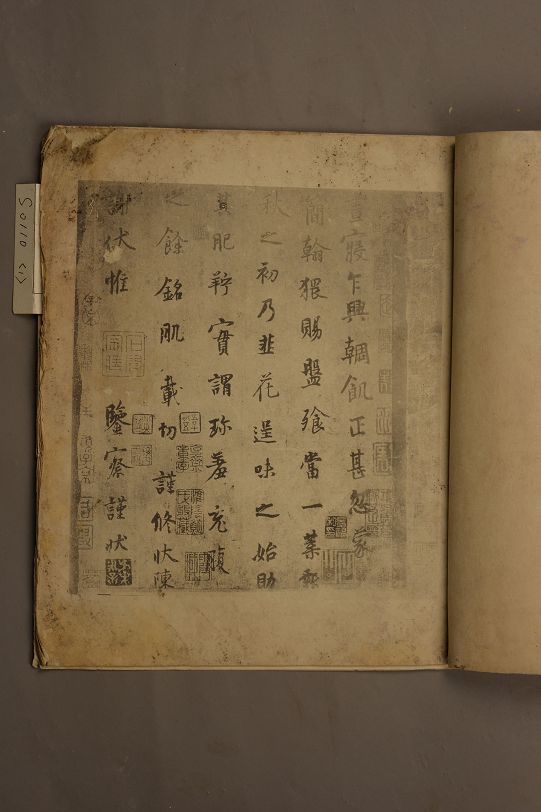 晝寢乍興輖飢正甚忽蒙
簡翰猥賜盤飧當一葉報
秋之初乃韭花逞味之始助
其肥羜實謂珍羞充腹
之餘銘肌載切謹修狀陳
謝伏惟 鑒察謹狀
<1> 01105